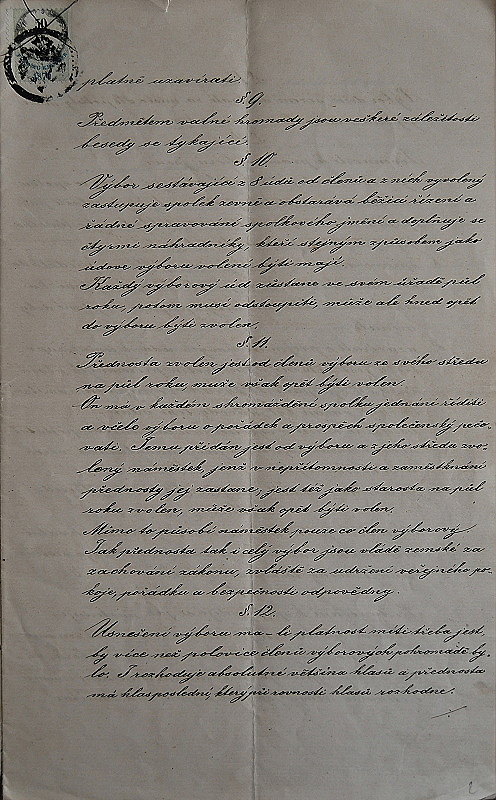 platně uzavírati.
§ 9.
Předmětem valné hromady jsou veškeré záležitosti
besedy se týkající.
§ 10.
Výbor sestávající z 8 údů od členů a z nich vyvolený
zastupuje spolek zevně a obstarává běžící řízení a
řádné spravování spolkového jmění a doplňuje se
čtyrmi náhradníky, kteří stejným způsobem jako
údové výboru voleni býti mají.
Každý výborový úd zůstane ve svém úřadě půl
roku, potom musí odstoupiti, může ale hned opět
do výboru býti zvolen.
§ 11.
Přednosta zvolen jest od členů výboru ze svého středu
na půl roku může však opět býti volen.
On má v každém shromáždění spolku jednání říditi
a vůči výboru o pořádek a prospěch společenský pečo-
vati. Jemu přidán jest od výboru a z jeho středu zvo-
lený náměstek, jenž v nepřítomnosti a zaměstnání
přednosty jej zastane, jest též jako starosta na půl
roku zvolen, může však opět býti volen.
Mimo to působí náměstek pouze co člen výborový.
Jak přednosta tak i celý výbor jsou vládě zemské za
zachování zákonů, zvláště za udržení veřejného po-
koje, pořádku a bezpečnosti odpovědny.
§ 12.
Usnešení výboru má-li platnost míti třeba jest
by více než polovice členů výborových pohromadě by-
lo. I rozhoduje absolutné většina hlasů a přednosta
má hlas poslední, který při rovnosti hlasů rozhodne.